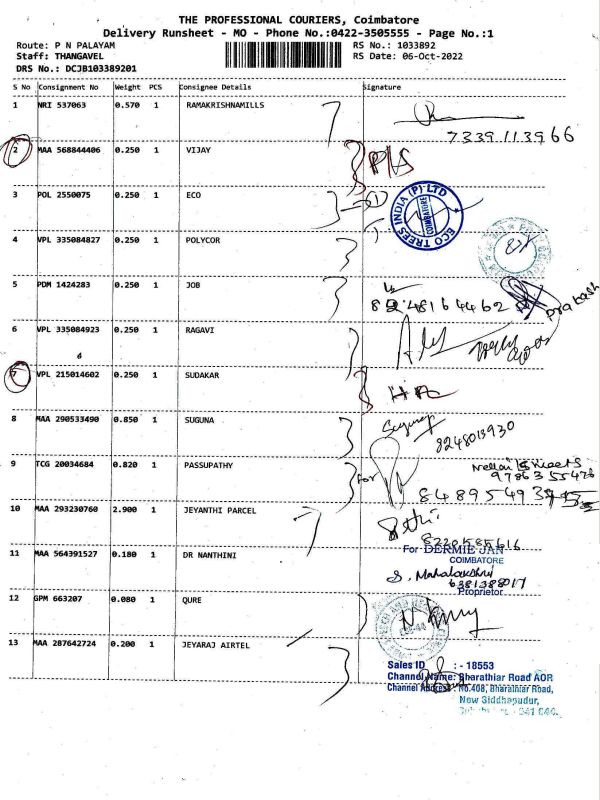 THE PROFESSIONAL COURIERS, Coimbatore
Delivery Runsheet - MO - Phone No.:0422-3505555 - Page No.:1
Route: P N PALAYAM RS No.: 1033892
Staff: THANGAVEL RS Date: 06-Oct-2022
DRS No.: DCJB103389201
S No Consignment No Weight PCS Consignee Details Signature
1 NRI 537063 0.570 1 RAMAKRISHNAMILLS
7339113966
MAA 568844406 0.250 1 VIJAY
3 POL 2550075 0.250 1 ECO
ECO TREES INDIA (P) LTD
COIMBATORE
4 VPL 335084827 0.250 1 POLYCOR
5 PDM 1424283 0.250 1 JOB
Prakash
6 VPL 335084923 0.250 1 RAGAVI
7 VPL 215014602 0.250 1 SUDAKAR
8 MAA 290533490 0.850 1 SUGUNA
9 TCG 20034684 0.820 1 PASSUPATHY
For
10 MAA 293230760 2.900 1 JEYANTHI PARCEL
8220585616
11 MAA 564391527 0.180 1 DR NANTHINI
For DERMIE JAN
COIMBATORE
S. Mahalakshmi
6381388017
Proprietor
12 GPM 663207 0.080 1 QURE
13 MAA 287642724 0.200 1 JEYARAJ AIRTEL
Sales ID : - 18553
Channel Name: Bharathiar Road AOR
Channel Address : No.408, Bharathiar Road,
New Siddhapudur,